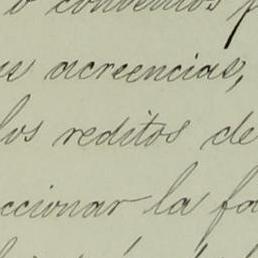 o conventos
acreencias,
los reditos de
ccionar la fa